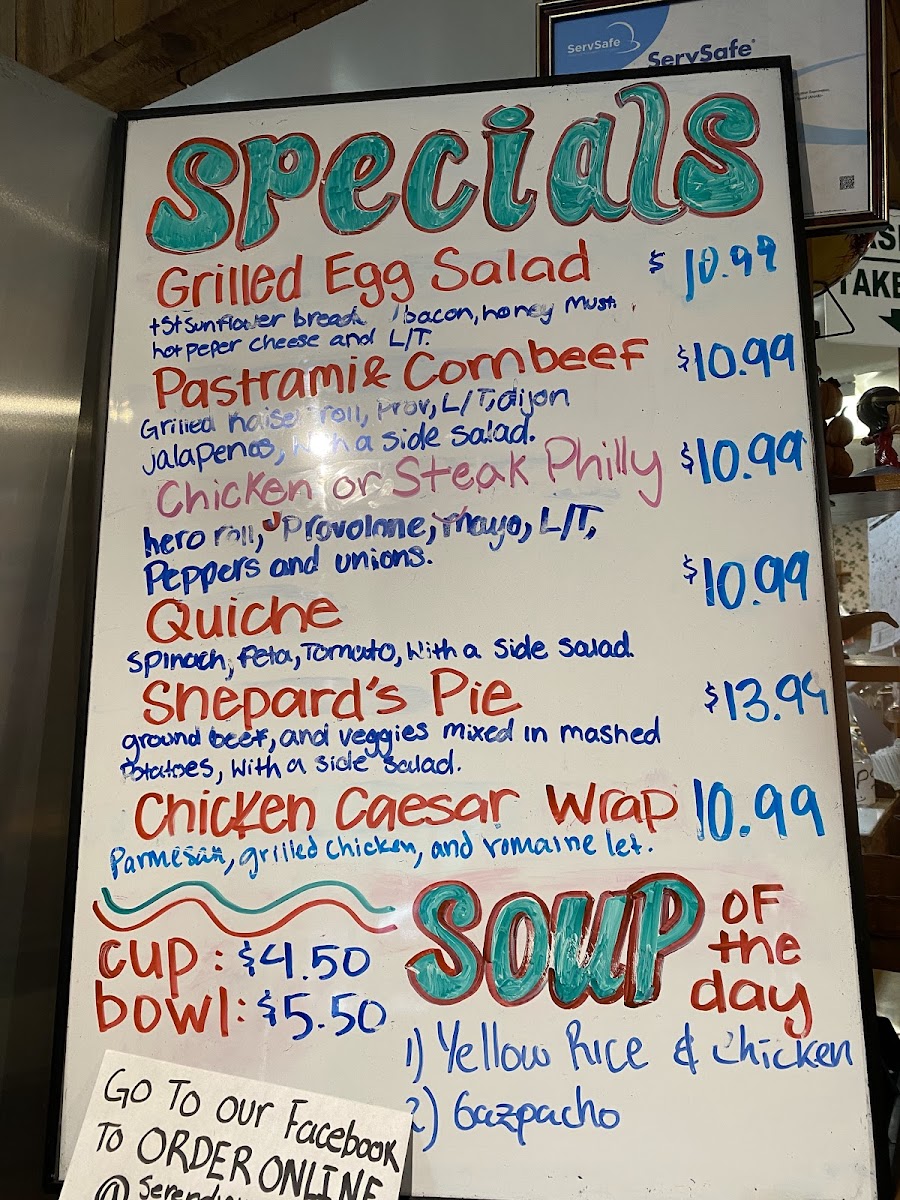 ServSafe
ServSafe
Specials
Grilled Egg Salad $ 10.99
tstsunflower bread /bacon, honey Must
hot peper cheese and L/T.
Pastrami & Cornbeef $10.99
Grilled kaise roll, Prov, L/T, dijon
jalapenos, with a side salad.
Chicken or Steak Philly $10.99
hero roll, Provolone, mayo, L/T,
Peppers and unions.
Quiche $10.99
Spinach, feta, Tomato, With a side salad.
Shepard's Pie $13.99
ground beef, and veggies mixed in mashed
Potatoes, With a side salad.
Chicken Caesar Wrap 10.99
Parmesan, grilled chicken, and romaine let.
cup: $4.50
bowl: $5.50
SOUP OF the day
1) Yellow Rice & chicken
2) Gazpacho
GO TO our Facebook
TO ORDER ONLINE
TAKE